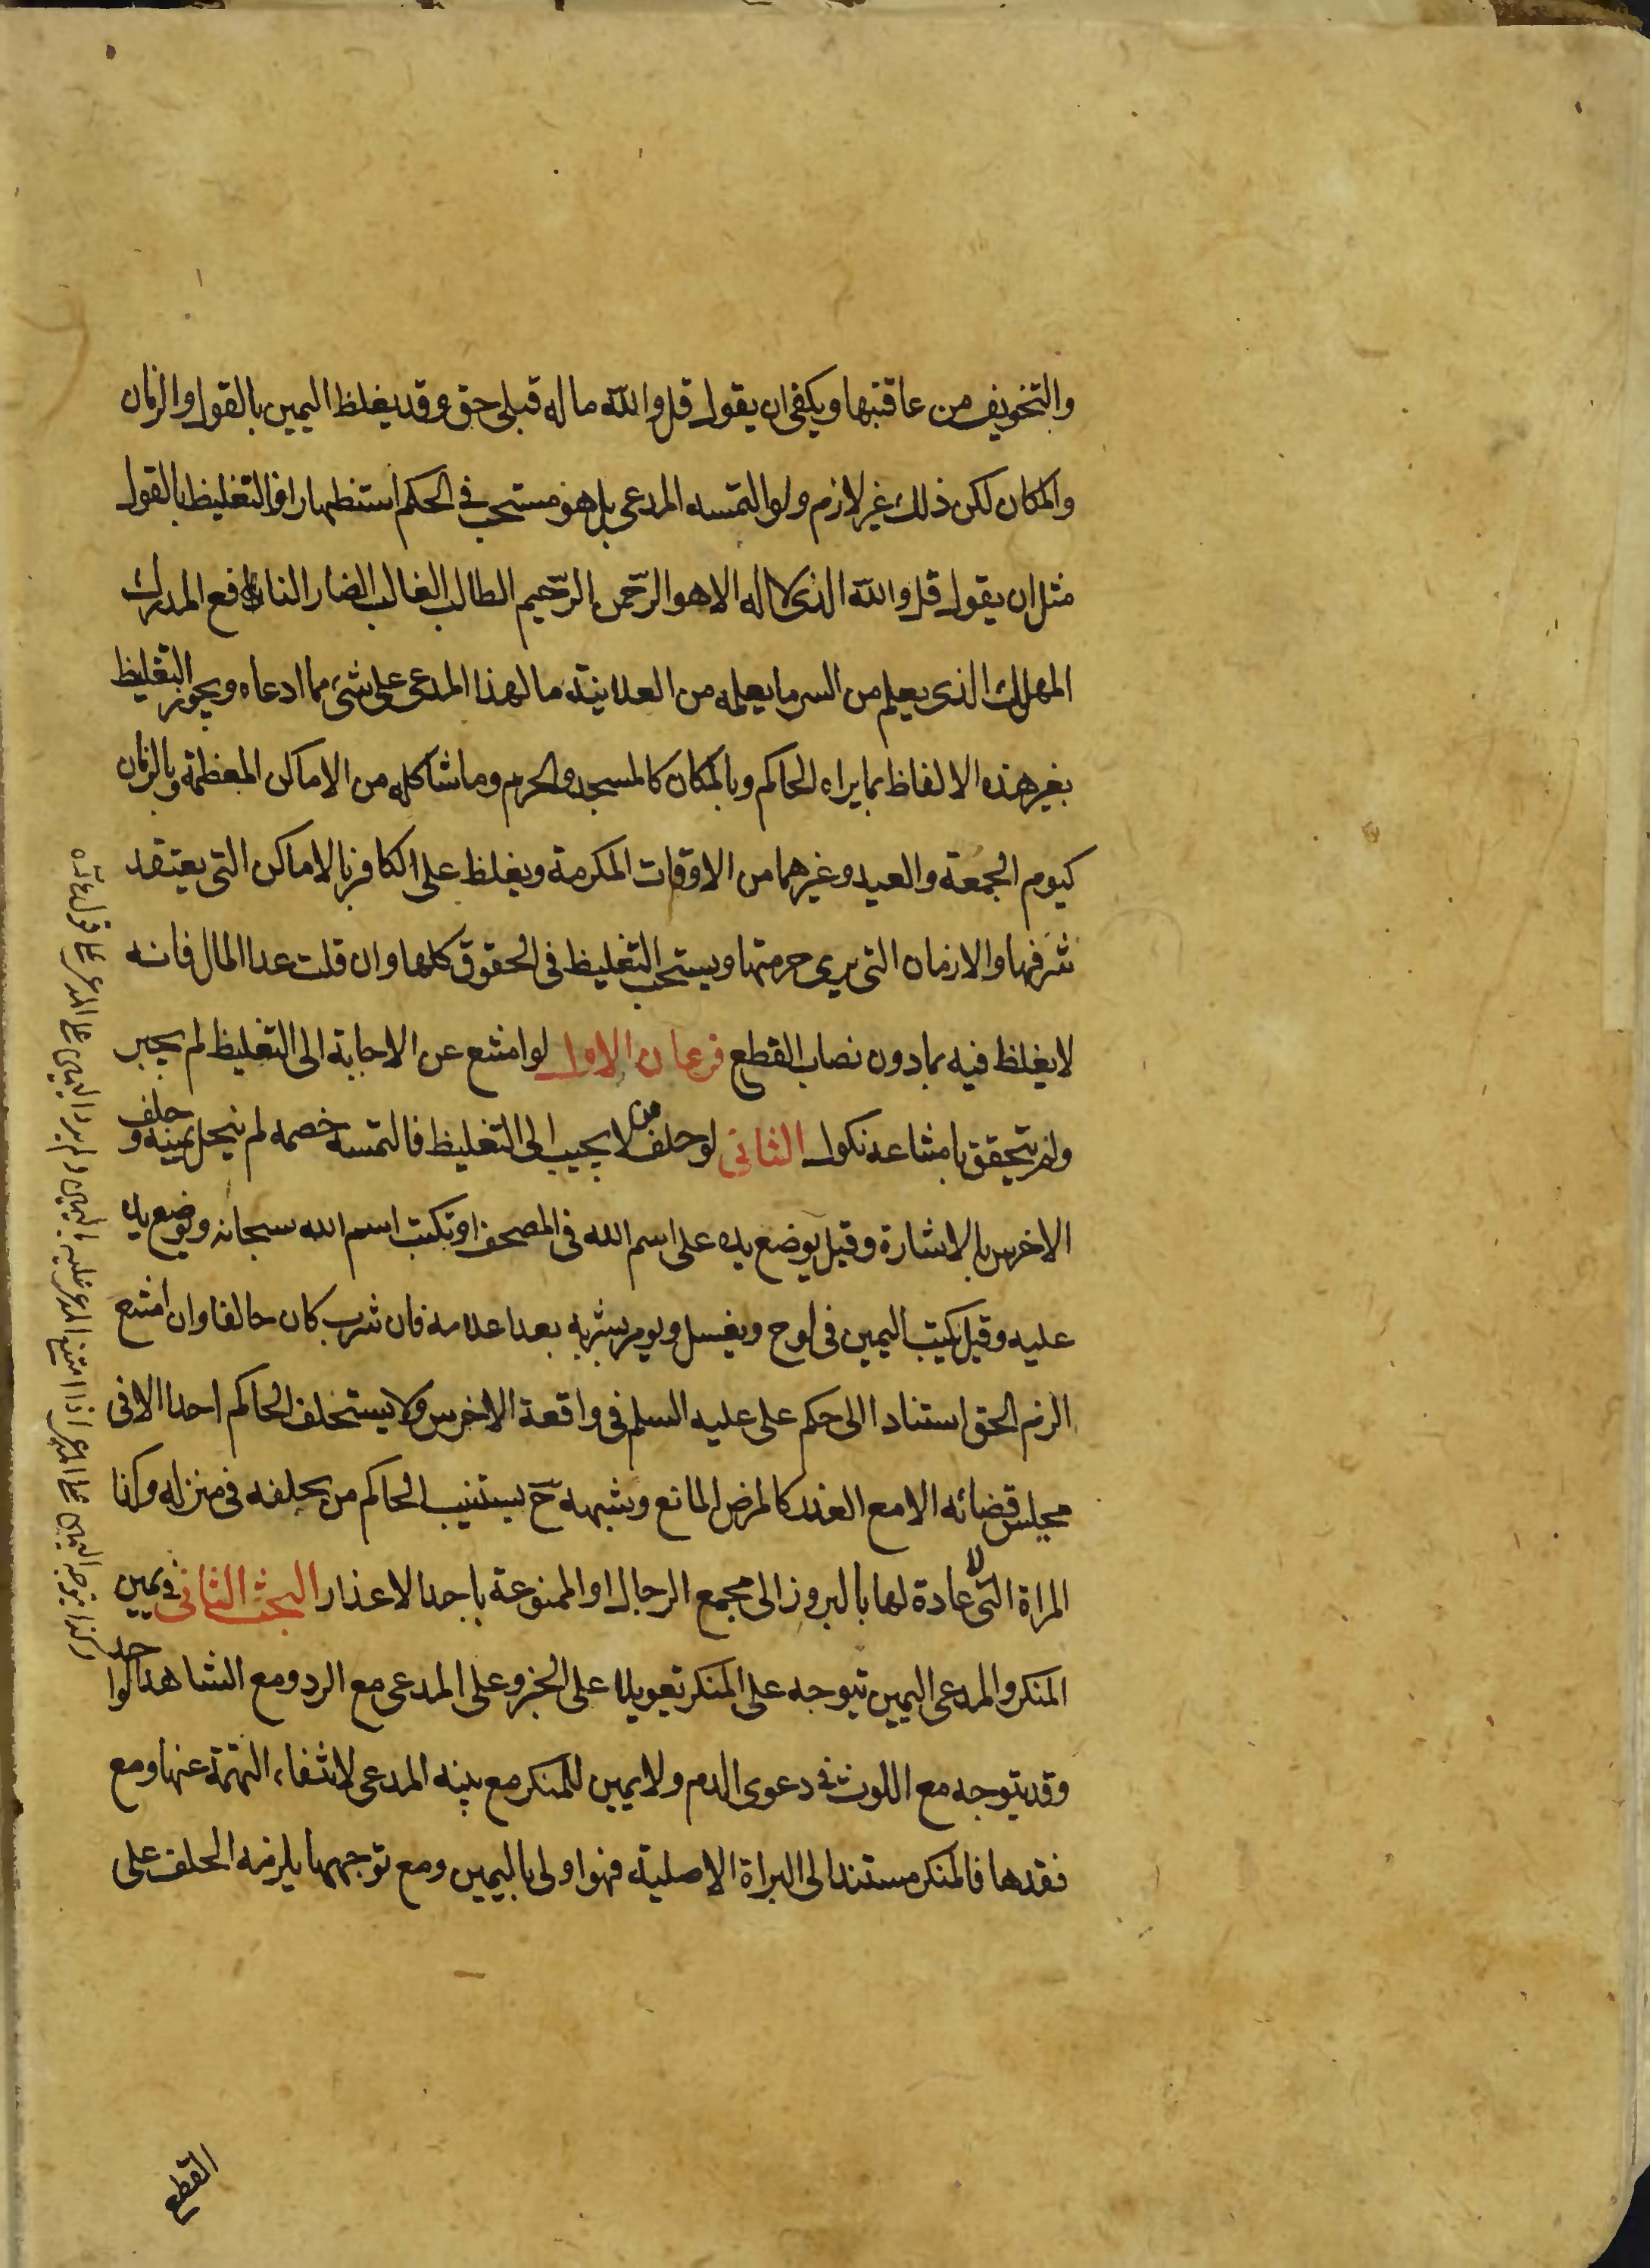 والتخويف من عاقبتها ويكفى ان يقول قل والله ما له قبلى حق وقد يغلظ اليمين بالقول والزمان
والمكان لكن ذلك غير لازم ولو التمسه المدعى بل هو مستحب فى الحكم استظهارا فالتغليظ بالقول
مثل ان يقول قل والله الذى لا اله الا هو الرحمن الرحيم الطالب الغالب الضار النافع المدرك
المهلك الذى يعلم من السر ما يعلمه من العلانية ما لهذا المدعى على شئ مما ادعاه ويجوز التغليظ
بغير هذه الالفاظ بما يراه الحاكم وبالمكان كالمسجد والحرم وما شاكله من الاماكن المعظمة وبالزمان
كيوم الجمعة والعيد وغيرهما من الاوقات المكرمة ويغلظ على الكافر بالاماكن التى يعتقد
شرفها والازمان التى يرى حرمتها ويستحب التغليظ فى الحقوق كلها وان قلت عدا المال فانه
لا يغلظ فيه بما دون نصاب القطع فرعان الاول لو امتنع عن الاجابة الى التغليظ لم يجبر
ولم يتحقق بامتناعه نكول الثانى لو حلف من لا يجيب الى التغليظ فالتمسه خصمه لم ينحل يمينه وحلف
الاخرس بالاشارة وقيل يوضع يده على اسم الله فى المصحف او يكتب اسم الله سبحانه ويوضع يده
عليه وقيل يكتب اليمين فى لوح ويغسل ويومر بشربه بعد اعلامه فان شرب كان حالفا وان امتنع
الزم الحق استنادا الى حكم على عليه السلم فى واقعة الاخرس ولا يستحلف الحاكم احدا الا فى
مجلس قضائه الا مع العذر كالمرض المانع وشبهه ح يستنيب الحاكم من يحلفه فى منزله وكذا
المراة التى لا عادة لها بالبروز الى مجمع الرجال او الممنوعة باحد الاعذار البحث الثانى فى يمين
المنكر والمدعى اليمين تتوجه على المنكر تعويلا على الخبر وعلى المدعى مع الرد ومع الشاهد الواحد
وقد يتوجه مع اللوث فى دعوى الدم ولا يمين للمنكر مع بينه المدعى لانتفاء التهمة عنها ومع
فقدها فالمنكر مستند الى البراة الاصلية فهو اولى باليمين ومع توجهها يلزمه الحلف على
القطع